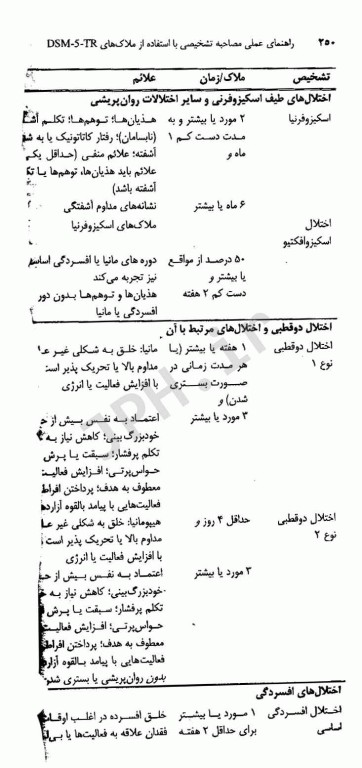 ۲۵۰ راهنمای عملی مصاحبه تشخیصی با استفاده از ملاک‌های DSM-5-TR
تشخیص ملاک/زمان علائم
اختلال‌های طیف اسکیزوفرنی و سایر اختلالات روان‌پریشی
اسکیزوفرنیا ۲ مورد یا بیشتر و به هذیان‌ها؛ توهم‌ها؛ تکلم
مدت دست کم ۱ (نابسامان)؛ رفتار کاتاتونیک یا به
ماه و آشفته؛ علائم منفی (حداقل
علائم باید هذیان‌ها، توهم‌ها یا
آشفته باشد)
۶ ماه یا بیشتر نشانه‌های مداوم آشفتگی
اختلال ملاک‌های اسکیزوفرنیا
اسکیزوافکتیو
۵۰ درصد از مواقع دوره های مانیا یا افسردگی
یا بیشتر و نیز تجربه می‌کند
دست کم ۲ هفته هذیان‌ها و توهم‌ها بدون دور
افسردگی یا مانیا
اختلال دوقطبی و اختلال‌های مرتبط با آن
اختلال دوقطبی ۱ هفته یا بیشتر (یا مانیا: خلق به شکلی غیر
نوع ۱ هر مدت زمانی در مداوم بالا یا تحریک پذیر است
صورت بستری با افزایش فعالیت یا انرژی
شدن) و
۳ مورد یا بیشتر اعتماد به نفس بیش از
خودبزرگ‌بینی؛ کاهش نیاز به
تکلم پرفشار؛ سبقت یا پرش
حواس‌پرتی؛ افزایش فعالیت
معطوف به هدف؛ پرداختن افراط
فعالیت‌هایی با پیامد بالقوه
اختلال دوقطبی حداقل ۴ روز و هیپومانیا: خلق به شکلی غیر
نوع ۲ مداوم بالا یا تحریک پذیر است
با افزایش فعالیت یا انرژی
۳ مورد یا بیشتر اعتماد به نفس بیش از
خودبزرگ‌بینی؛ کاهش نیاز به
تکلم پرفشار؛ سبقت یا پرش
حواس‌پرتی؛ افزایش
معطوف به هدف؛ پرداختن
فعالیت‌هایی با پیامد بالقوه
بدون روان‌پریشی یا بستری
اختلال‌های افسردگی
اختلال افسردگی ۱ مورد یا بیشتر خلق افسرده در اغلب
اساسی برای حداقل ۲ هفته فقدان علاقه به فعالیت‌ها یا